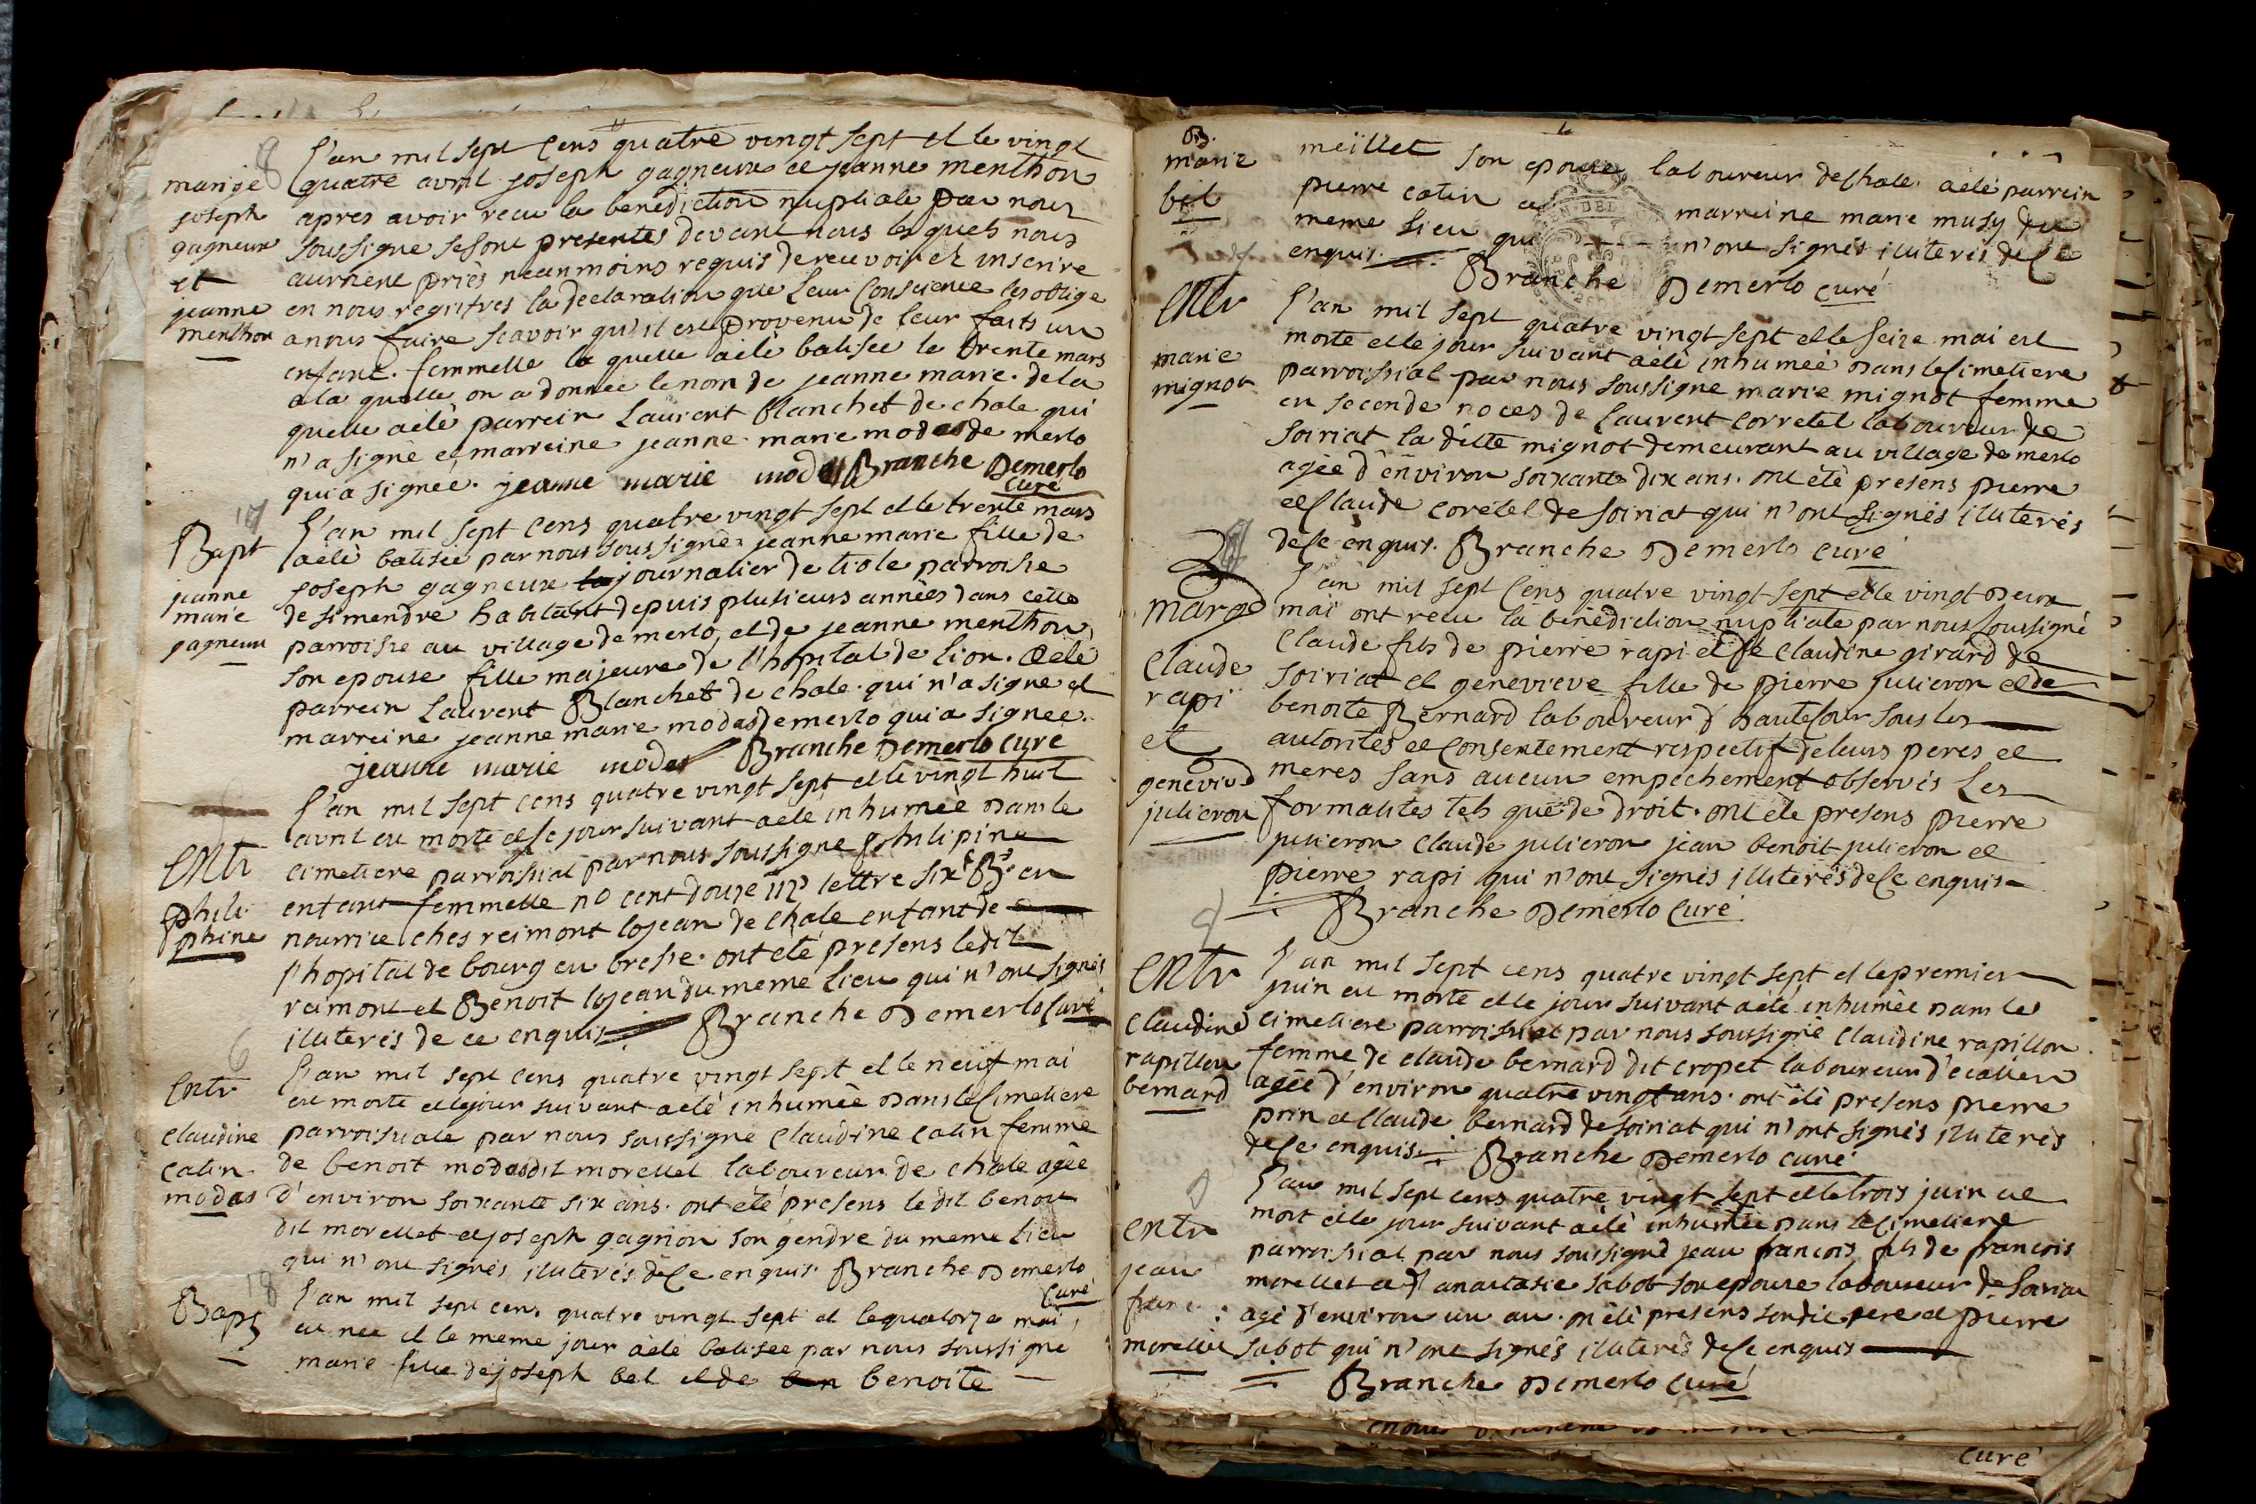 8
marige
joseph
gagneux
et
jeanne
menthon
l'an mil sept cens quatre vingt sept et le vingt
quatre avril joseph gagneux et jeanne menthon
apres avoir recu la benediction nuptiale par nous
soussigne se sont presentes devant nous lesquels nous
auroient priés neanmoins requis de recevoir et inscrire
en nous regitres la declaration que leur conscience les oblige
a nous faire scavoir qu'il est provenu de leur faits un
enfant femmelle la quelle a été batisee le trente mars
a la quelle on a donnee le nom de jeanne marie. de la
quelle a été parrein Laurent Blanchet de chale qui
n'a signé et marreine jeanne marie modas de merlo
qui a signée. jeanne marie modas Branche Demerlo
curé
17
Bapt
jeanne
marie
gagneux
l'an mil sept cens quatre vingt sept et le trente mars
a été batisée par nous soussigné jeanne marie fille de
joseph gagneux journalier de tiole parroisse
de simendre habitant depuis plusieurs années dans cette
parroisse au village de merlo, et de jeanne menthon
son epouse fille majeure de l'hopital de lion. a été
parrein Laurent Blanchet de chale. qui n'a signe et
marreine jeanne marie modas de merlo qui a signee.
jeanne marie modas Branche Demerlo curé
Entr
phili
phine
l'an mil sept cens quatre vingt sept et le vingt huit
avril est morte et le jour suivant a été inhumée dans le
cimetiere parroissial par nous soussigne philipine
enfant femmelle no cent douze 112 lettre six B en
nourrice ches reimont lojean de chale enfant de
l'hopital de bourg en bresse. ont été presens ledit
reimont et Benoit lojean du meme lieu qui n'ont signés
illiterés de ce enquis Branche Demerlo curé
6
Entr
claudine
catin
modas
l'an mil sept cens quatre vingt sept et le neuf mai
est morte et le jour suivant a été inhumée dans le cimetiere
parroissiale par nous soussigné claudine catin femme
de benoit modas dit morellet laboureur de chale agée
d'environ soixante six ans. ont été presens le dit benoit
dit morellet et joseph gagnion son gendre du meme lieu
qui n'ont signés illiterés de ce enquis. Branche Demerlo
curé
18
Bapt
l'an mil sept cens quatre vingt sept et le quatorze mai
est née et le meme jour a été batisée par nous soussigné
marie fille de joseph bel et de benoite
marie
bel
meillet son epouse laboureur de chale a été parrein
pierre catin marreine marie musy du
meme lieu qui n'ont signés illiterés de ce
enquis. Branche Demerlo curé
Entr
marie
mignot
l'an mil sept quatre vingt sept et le seize mai est
morte et le jour suivant a été inhumée dans le cimetiere
parroissial par nous soussigne marie mignot femme
en seconde noces de laurent corretel laboureur de
soiriat la ditte mignot demeurant au village de merlo
agée d'environ soixante dix ans. ont été presens pierre
et claude coretel de soiriat qui n'ont signés illiterés
de ce enquis. Branche Demerlo curé
marge
claude
rapi
et
genevieve
julieron
l'an mil sept cens quatre vingt sept et le vingt deux
mai ont recu la bénédiction nuptiale par nous soussigné
claude fils de pierre rapi et de claudine girard de
soiriat et genevieve fille de pierre julieron et de
benoite Bernard laboureur d'hautecour sous les
autorités et consentement respectif de leurs peres et
meres sans aucun empéchement observés les
formalites tels que de droit. ont été presens pierre
julieron claude julieron jean benoit julieron et
pierre rapi qui n'ont signés illiterés de ce enquis
Branche Demerlo curé
Entr
claudine
rapillon
bernard
l'an mil sept cens quatre vingt sept et le premier
juin est morte et le jour suivant a été inhumée dans le
cimetiere parroissial par nous soussigné claudine rapillon
femme de claude bernard dit cropet laboureur d'
agée d'environ quatre vingt ans. ont été presens pierre
prin et claude bernard de soiriat qui n'ont signés illiterés
de ce enquis. Branche Demerlo curé
Entr
jean
franc
morellet
l'an mil sept cens quatre vingt sept et le trois juin est
mort et le jour suivant a été inhumée dans le cimetiere
parroissial par nous soussigné jean francois fils de francois
morellet et d'anastasie sabot son epouse laboureur de soiriat
agé d'environ un an. ont été presens son dit pere et pierre
sabot qui n'ont signés illiterés de ce enquis
Branche Demerlo curé
curé